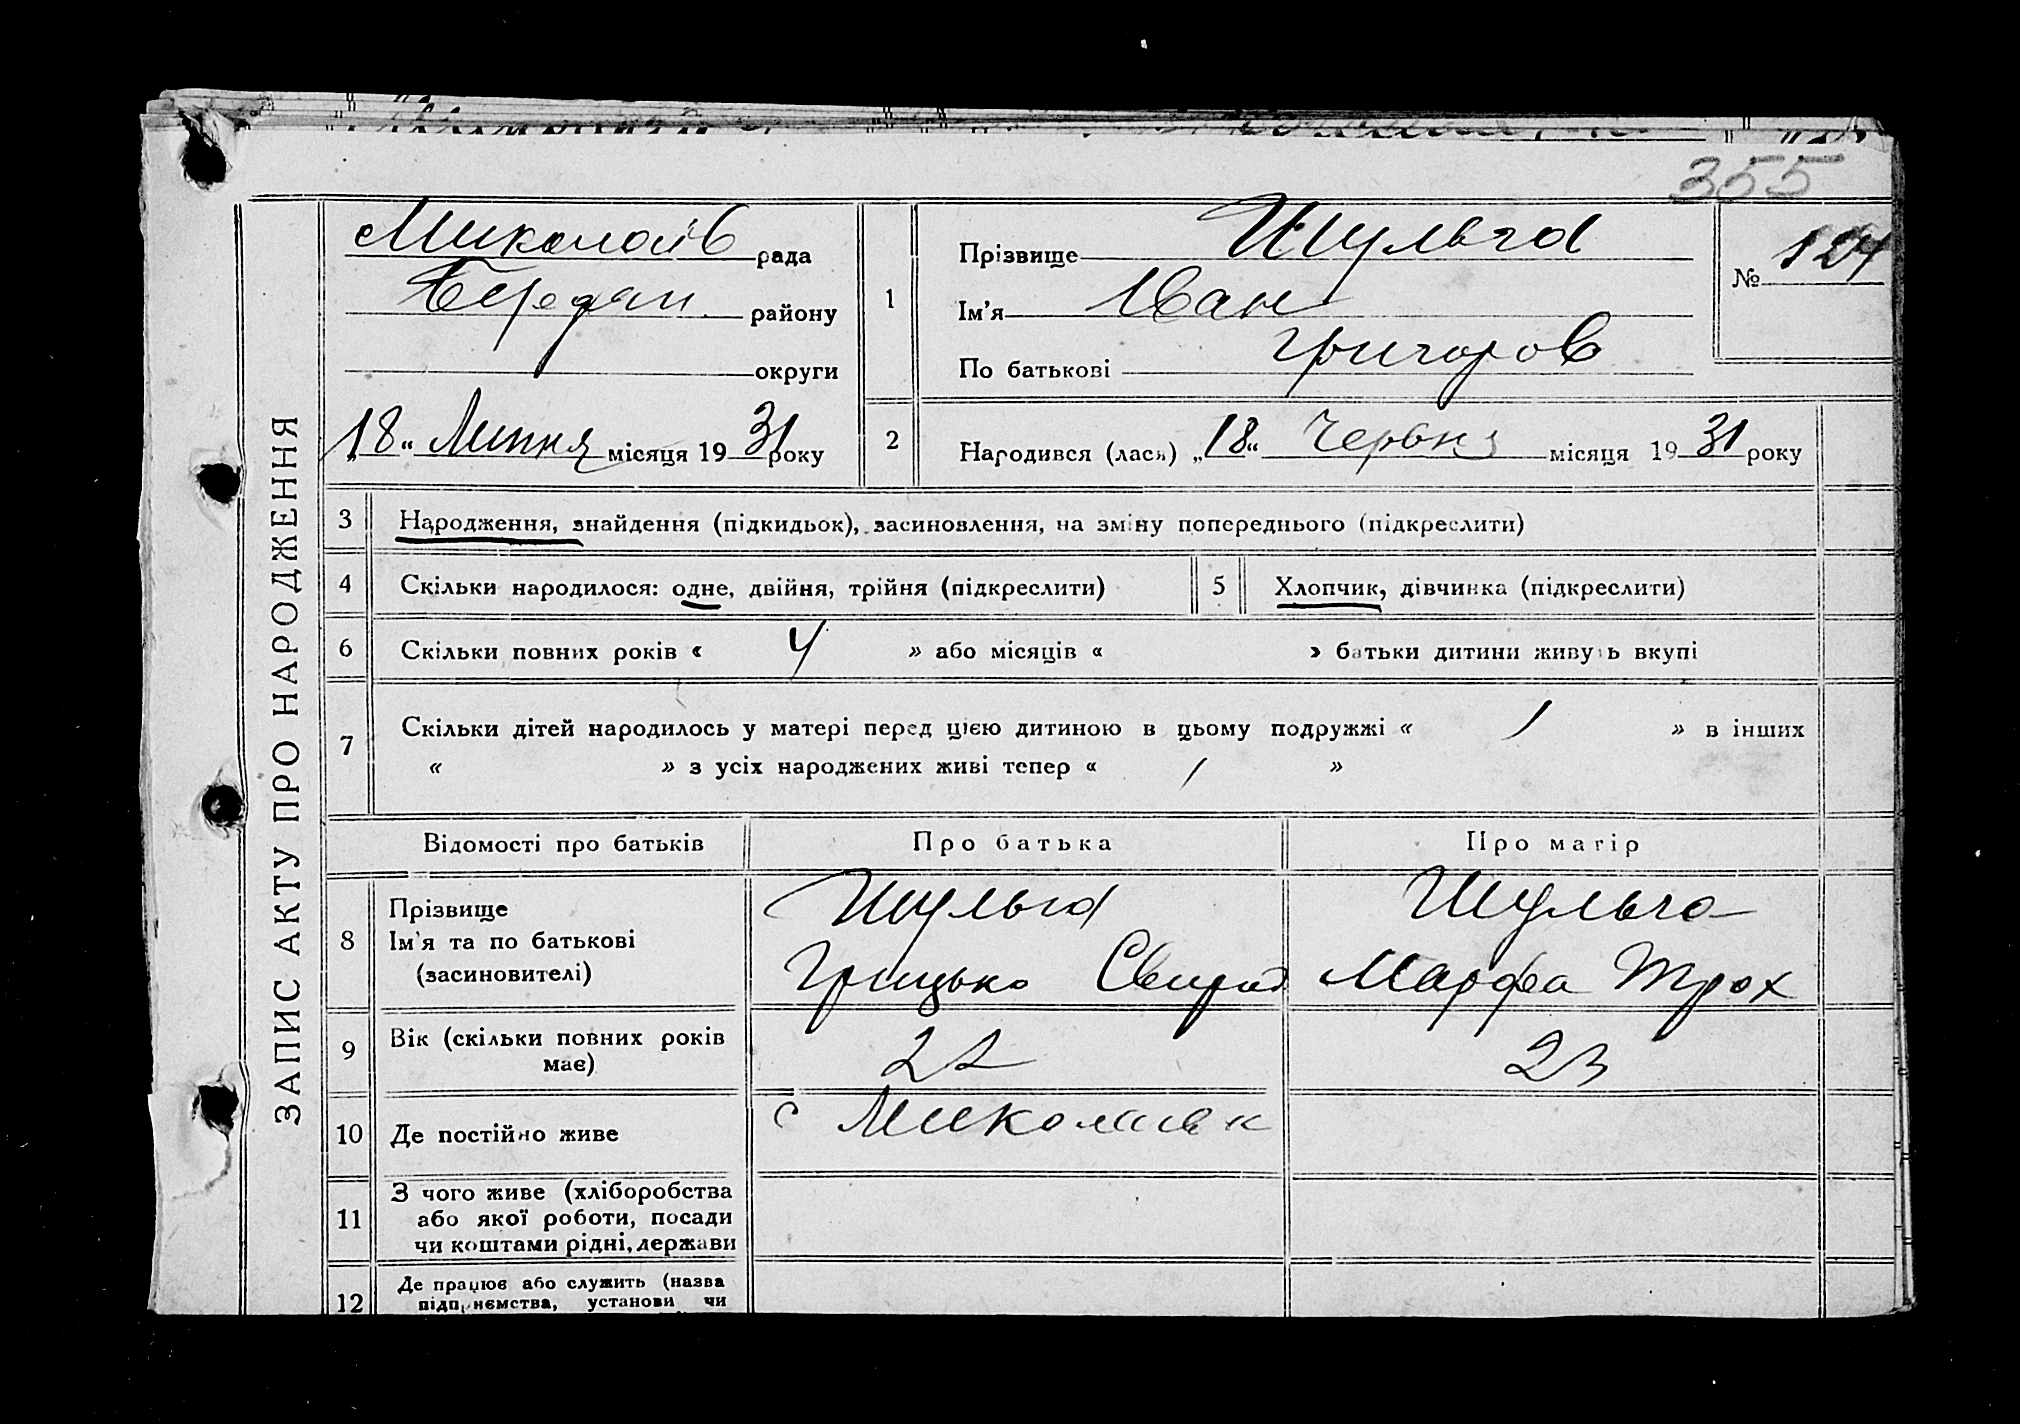 355
ЗАПИС АКТУ ПРО НАРОДЖЕННЯ
Миколаїв рада
Бердян району
округи
„18“ Липня місяця 1931 року
1
Прізвище Шульга
Ім'я Іван
По батькові Григоров
№ 124
2
Народився (лася) „18“ Червня місяця 1931 року
3 Народження, знайдення (підкидьок), засиновлення, на зміну попереднього (підкреслити)
4 Скільки народилося: одне, двійня, трійня (підкреслити)
5 Хлопчик, дівчинка (підкреслити)
6 Скільки повних років « 4 » або місяців « » батьки дитини живуть вкупі
7 Скільки дітей народилось у матері перед цією дитиною в цьому подружжі « 1 » в інших
« » з усіх народжених живі тепер « 1 »
Відомості про батьків Про батька Про матір
8
Прізвище Шульга Шульга
Ім'я та по батькові Грицько Свирид Марфа Трох
(засиновителі)
9 Вік (скільки повних років має) 22 23
10 Де постійно живе с Миколаївк
11 З чого живе (хліборобства
або якої роботи, посади
чи коштами рідні, держави
12 Де працює або служить (назва
підприємства, установи чи